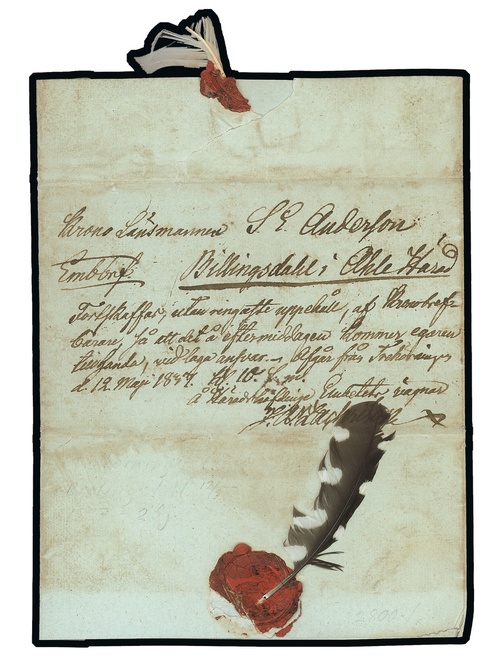 Krono Länsmannen S. E. Anderson
Embbrf. Billingsdahl i Ahle Härad
Fortskaffas, utan ringaste uppehåll, af Kronobref-
bärare, så att det å eftermiddagen kommer egaren
tillhanda, vid laga ansvar. – Afgår från
d. 12 Maji 18 kl 10. f. m.
å Häradshöfdinge Embetets vägnar